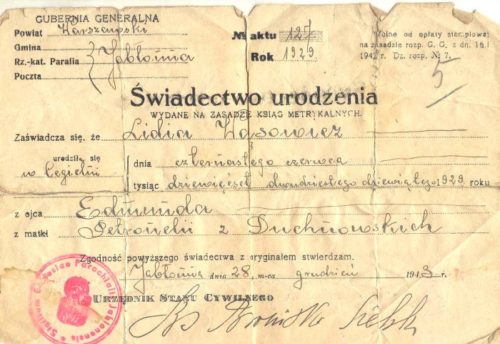 GUBERNIA GENERALNA
Powiat Warszawski
Gmina
Rz.-kat. Parafia Jabłonna
Poczta
№ aktu 127
Rok 1929
Wolne od opłaty stemplowej
na zasadzie rozp. G. G. z dn. 16.I
Dz. rozp. № 7.
5
Świadectwo urodzenia
WYDANE NA ZASADZIE KSIĄG METRYKALNYCH.
Zaświadcza się, że Lidia Wąsowicz
urodziła się dnia czternastego czerwca
w Legjonowie
tysiąc dziewięćset dwudziestego dziewiątego 1929 roku
z ojca Edmunda
z matki Petroneli z Duchnowskich
Zgodność powyższego świadectwa z oryginałem stwierdzam.
Jabłonna dnia 28, m-ca grudzień 1943 r.
URZĘDNIK STANU CYWILNEGO
Ks